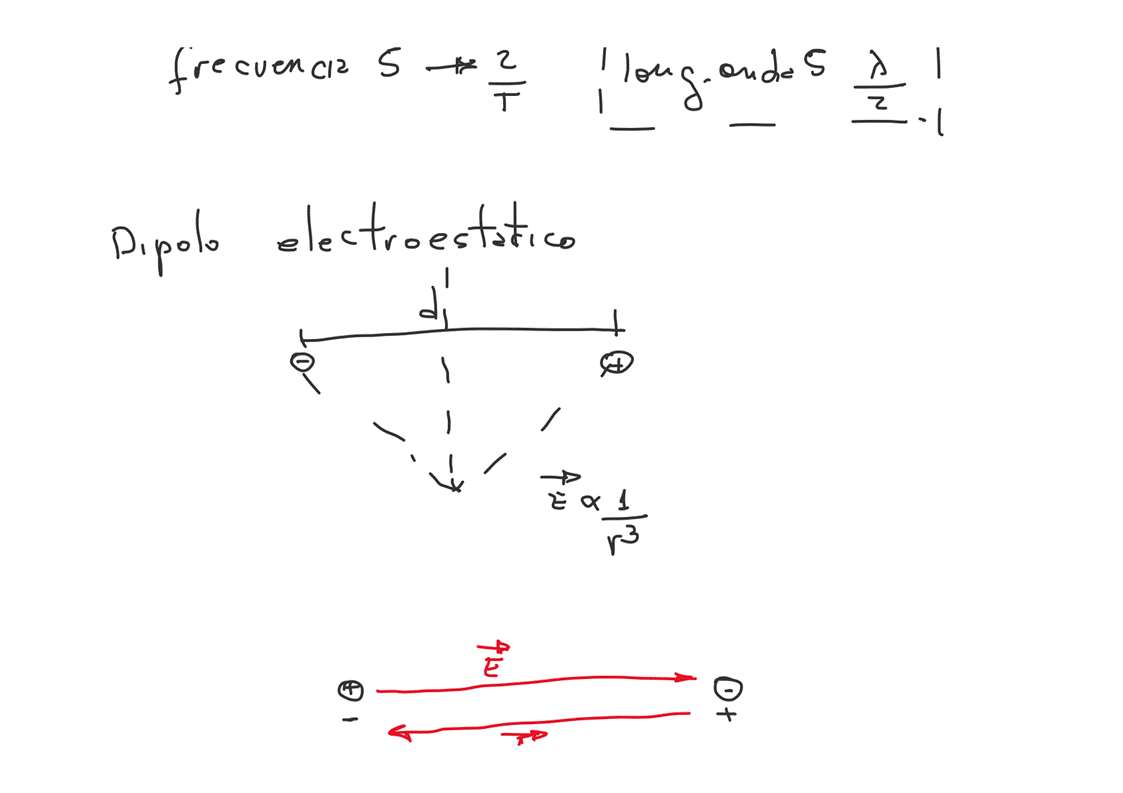 frecuencia S → 2/T long. onda S λ/2
Dipolo electroestatico
d
⊖ ⊕
E⃗ ∝ 1/r³
E⃗
⊕ ⊖
- +